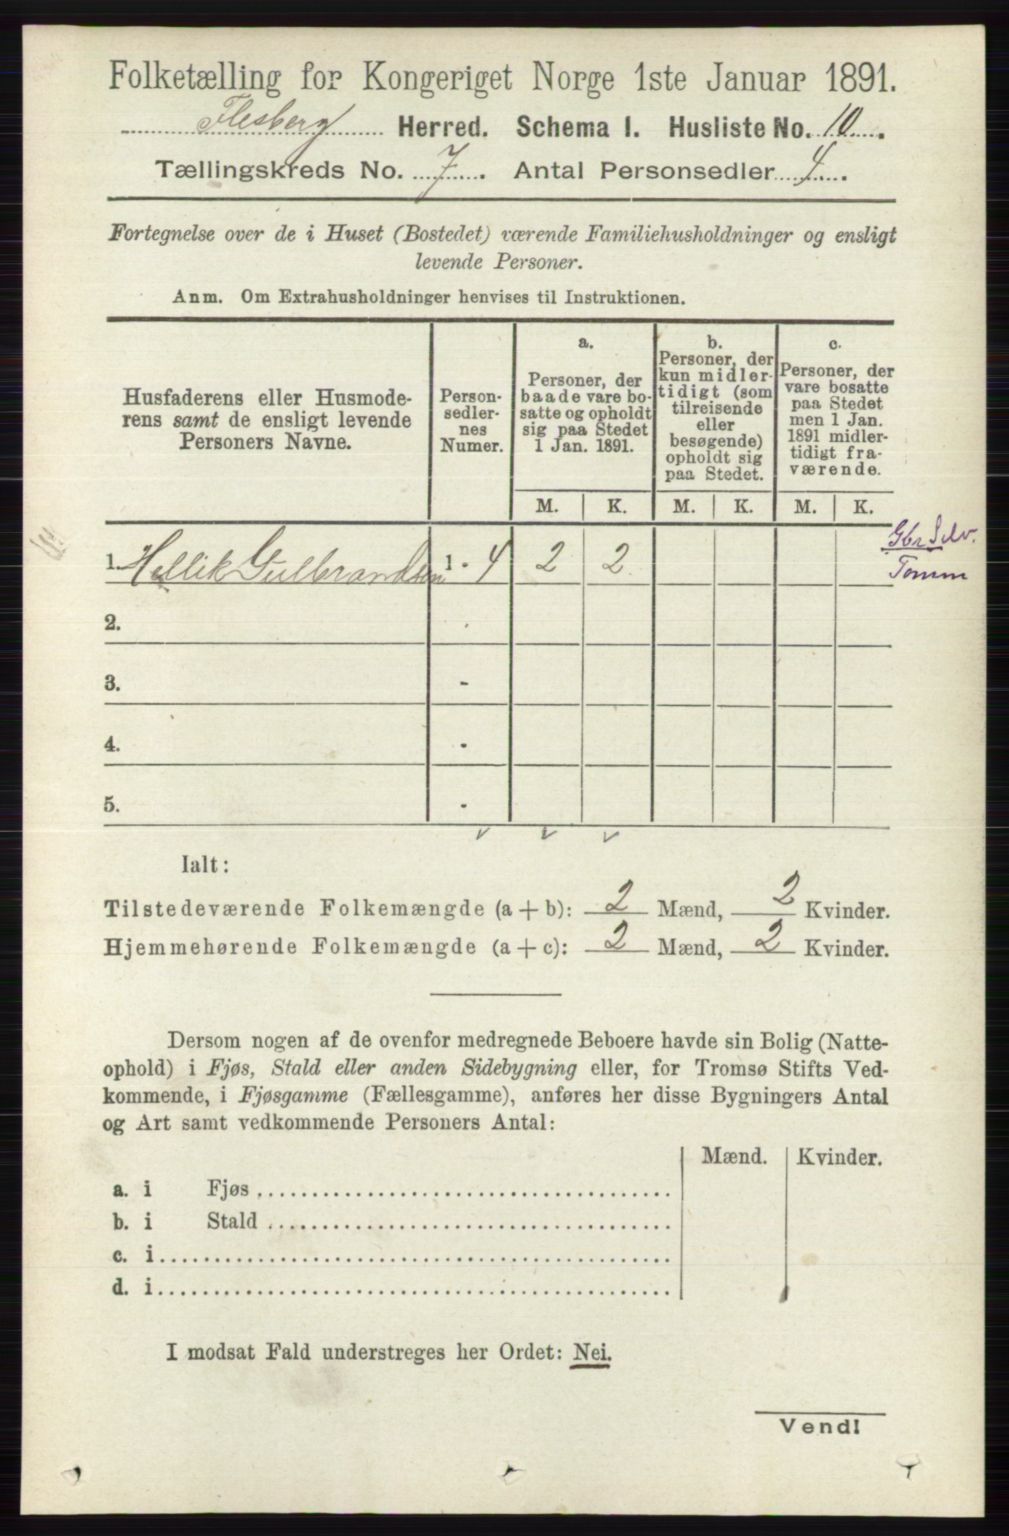 Folketælling for Kongeriget Norge 1ste Januar 1891.
Flesberg Herred. Schema I. Husliste No. 10.
Tællingskreds No. 7. Antal Personsedler 4.
Fortegnelse over de i Huset (Bostedet) værende Familiehusholdninger og ensligt
levende Personer.
Anm. Om Extrahusholdninger henvises til Instruktionen.
Husfaderens eller Husmode-
rens samt de ensligt levende
Personers Navne.
Person-
sedler-
nes
Numer.
a.
Personer, der
baade vare bo-
satte og opholdt
sig paa Stedet
1 Jan. 1891.
b.
Personer, der
kun midler-
tidigt (som
tilreisende
eller
besøgende)
opholdt sig
paa Stedet.
c.
Personer, der
vare bosatte
paa Stedet
men 1 Jan.
1891 midler-
tidigt fra-
værende.
M. K. M. K. M. K.
1. Hellik Gulbrandsen 1 - 4 2 2
Gbr Selv.
Tømm
2.
3. -
4. -
5. -
Ialt:
Tilstedeværende Folkemængde (a + b): 2 Mænd, 2 Kvinder.
Hjemmehørende Folkemængde (a + c): 2 Mænd, 2 Kvinder.
Dersom nogen af de ovenfor medregnede Beboere havde sin Bolig (Natte-
ophold) i Fjøs, Stald eller anden Sidebygning eller, for Tromsø Stifts Ved-
kommende, i Fjøsgamme (Fællesgamme), anføres her disse Bygningers Antal
og Art samt vedkommende Personers Antal:
Mænd. Kvinder.
a. i Fjøs
b. i Stald
c. i
d. i
I modsat Fald understreges her Ordet: Nei.
Vend!